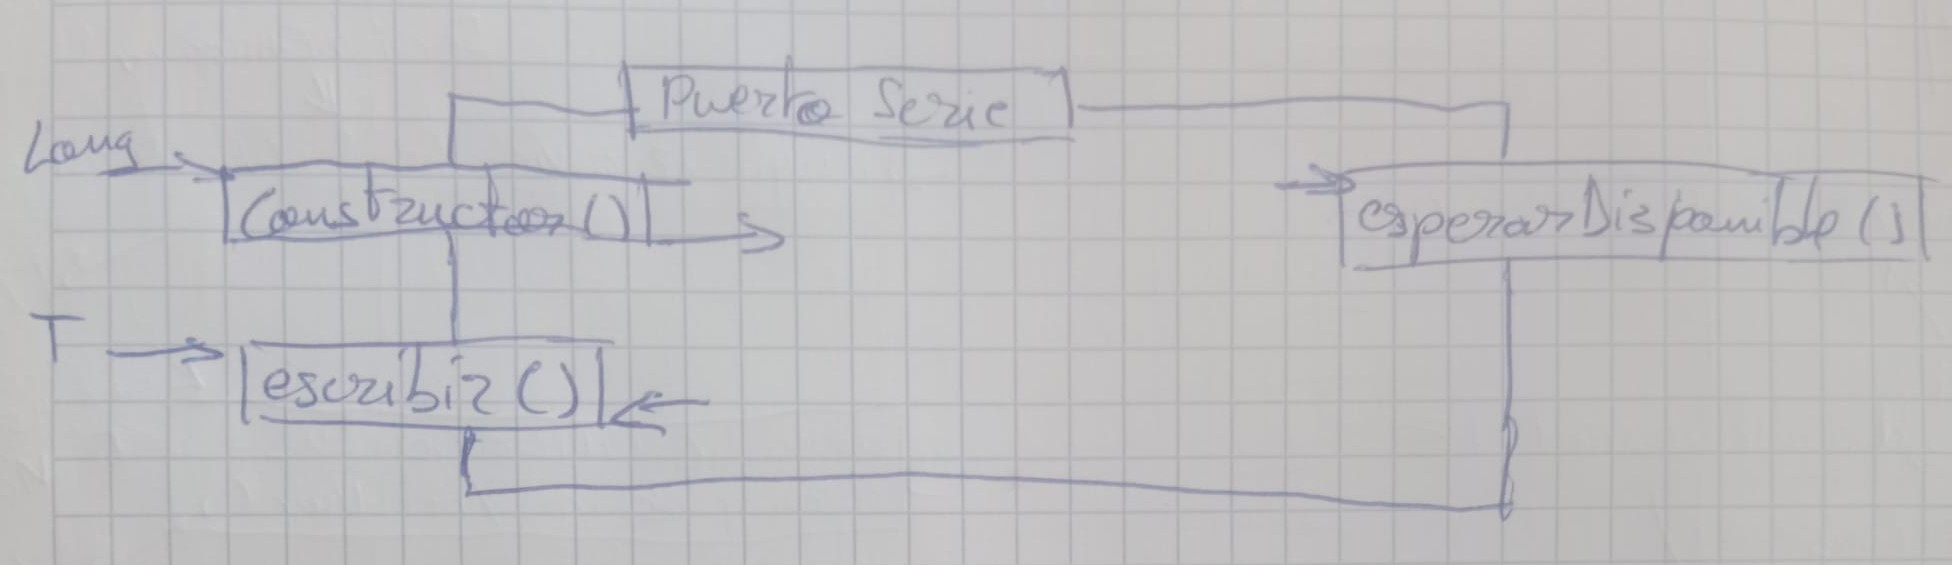 Puerto Serie
Long
Constructor()
esperarDisponible()
T
escribir()